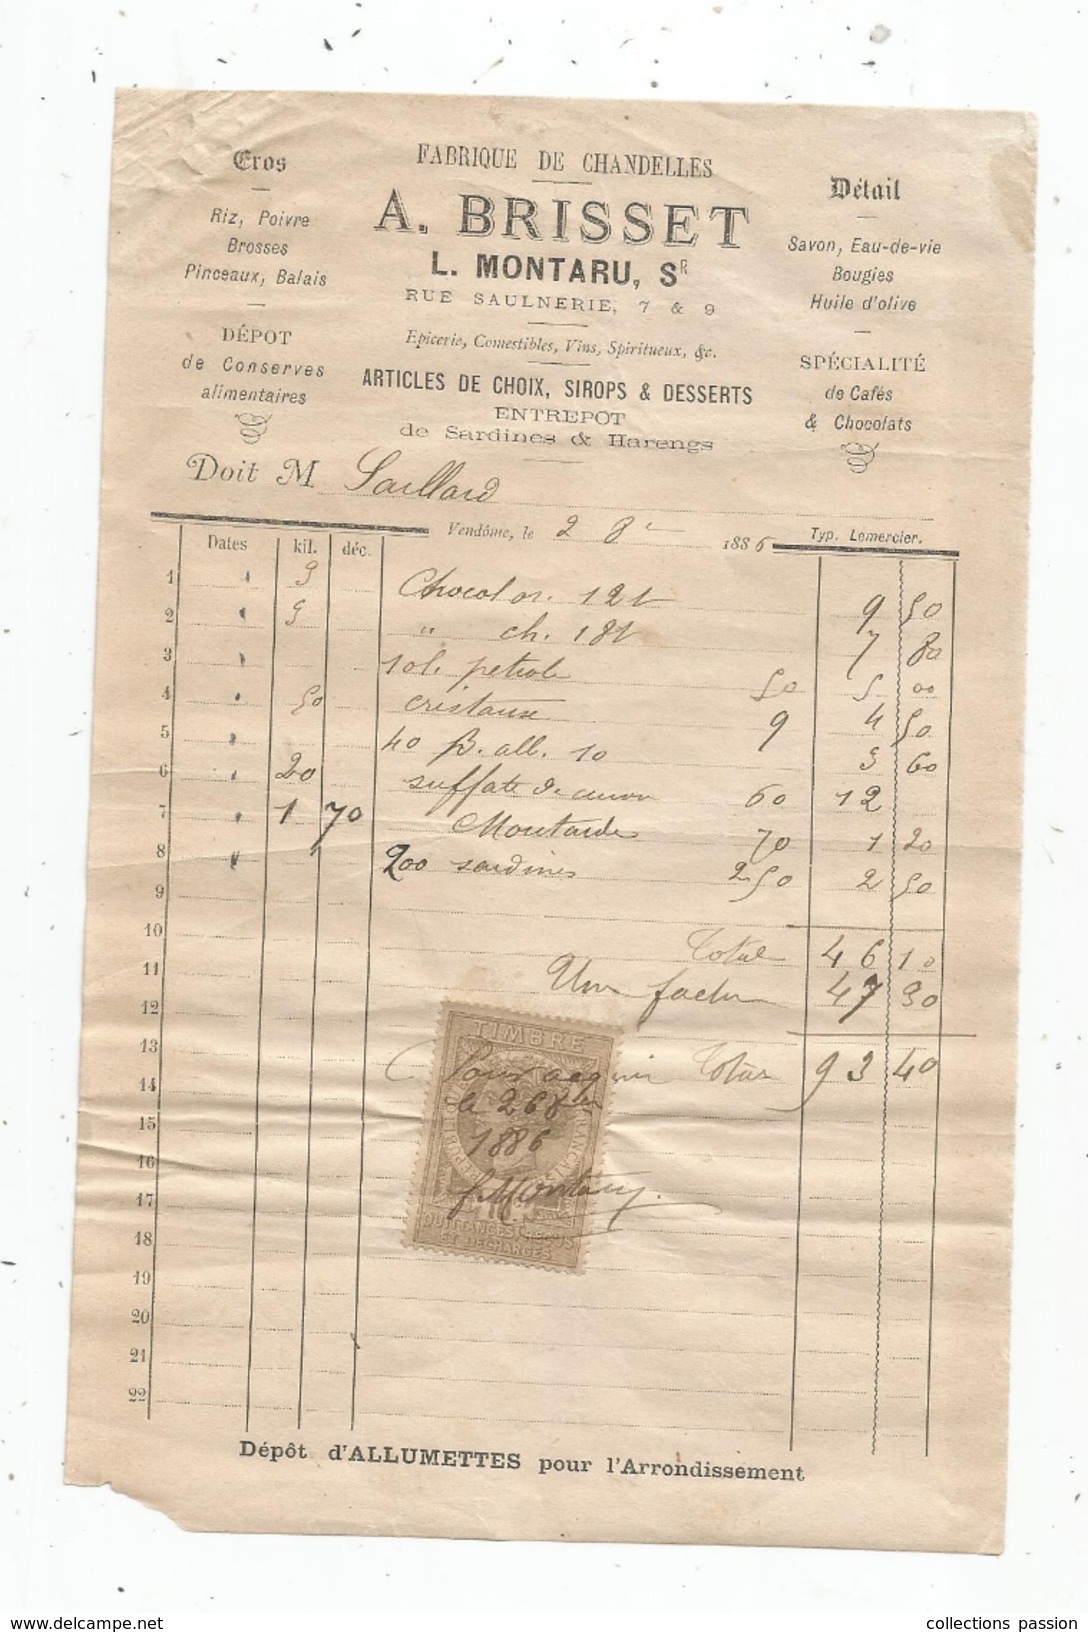 Gros
Riz, Poivre
Brosses
Pinceaux, Balais
DÉPOT
de Conserves
alimentaires
FABRIQUE DE CHANDELLES
A. BRISSET
L. MONTARU, SR
RUE SAULNERIE, 7 & 9
Epicerie, Comestibles, Vins, Spiritueux, &c.
ARTICLES DE CHOIX, SIROPS & DESSERTS
ENTREPOT
de Sardines & Harengs
Détail
Savon, Eau-de-vie
Bougies
Huile d'olive
SPÉCIALITÉ
de Cafés
& Chocolats
Doit M Saillard
Vendôme, le 2 8 1886
Typ. Lemercier.
Dates kil. déc.
1 Chocolat 12t 9 50
2 " ch. 18t 7 80
3 petrole 50 5 00
4 50 cristaux 9 4 50
5 40 B. all. 10 3 60
6 20 sulfate de cuivre 60 12
7 1 70 Moutarde 70 1 20
8 200 sardines 2 50 2 50
9
10 Total 46 10
11 Une facture 47 30
12
13 Total 93 40
14
15
16
17
18
19
20
21
22
TIMBRE
RÉPUBLIQUE FRANÇAISE
QUITTANCES, REÇUS
ET DÉCHARGES
Pour acquit
le 26 8bre
1886
Montaru
Dépôt d'ALLUMETTES pour l'Arrondissement
www.delcampe.net
collections passion